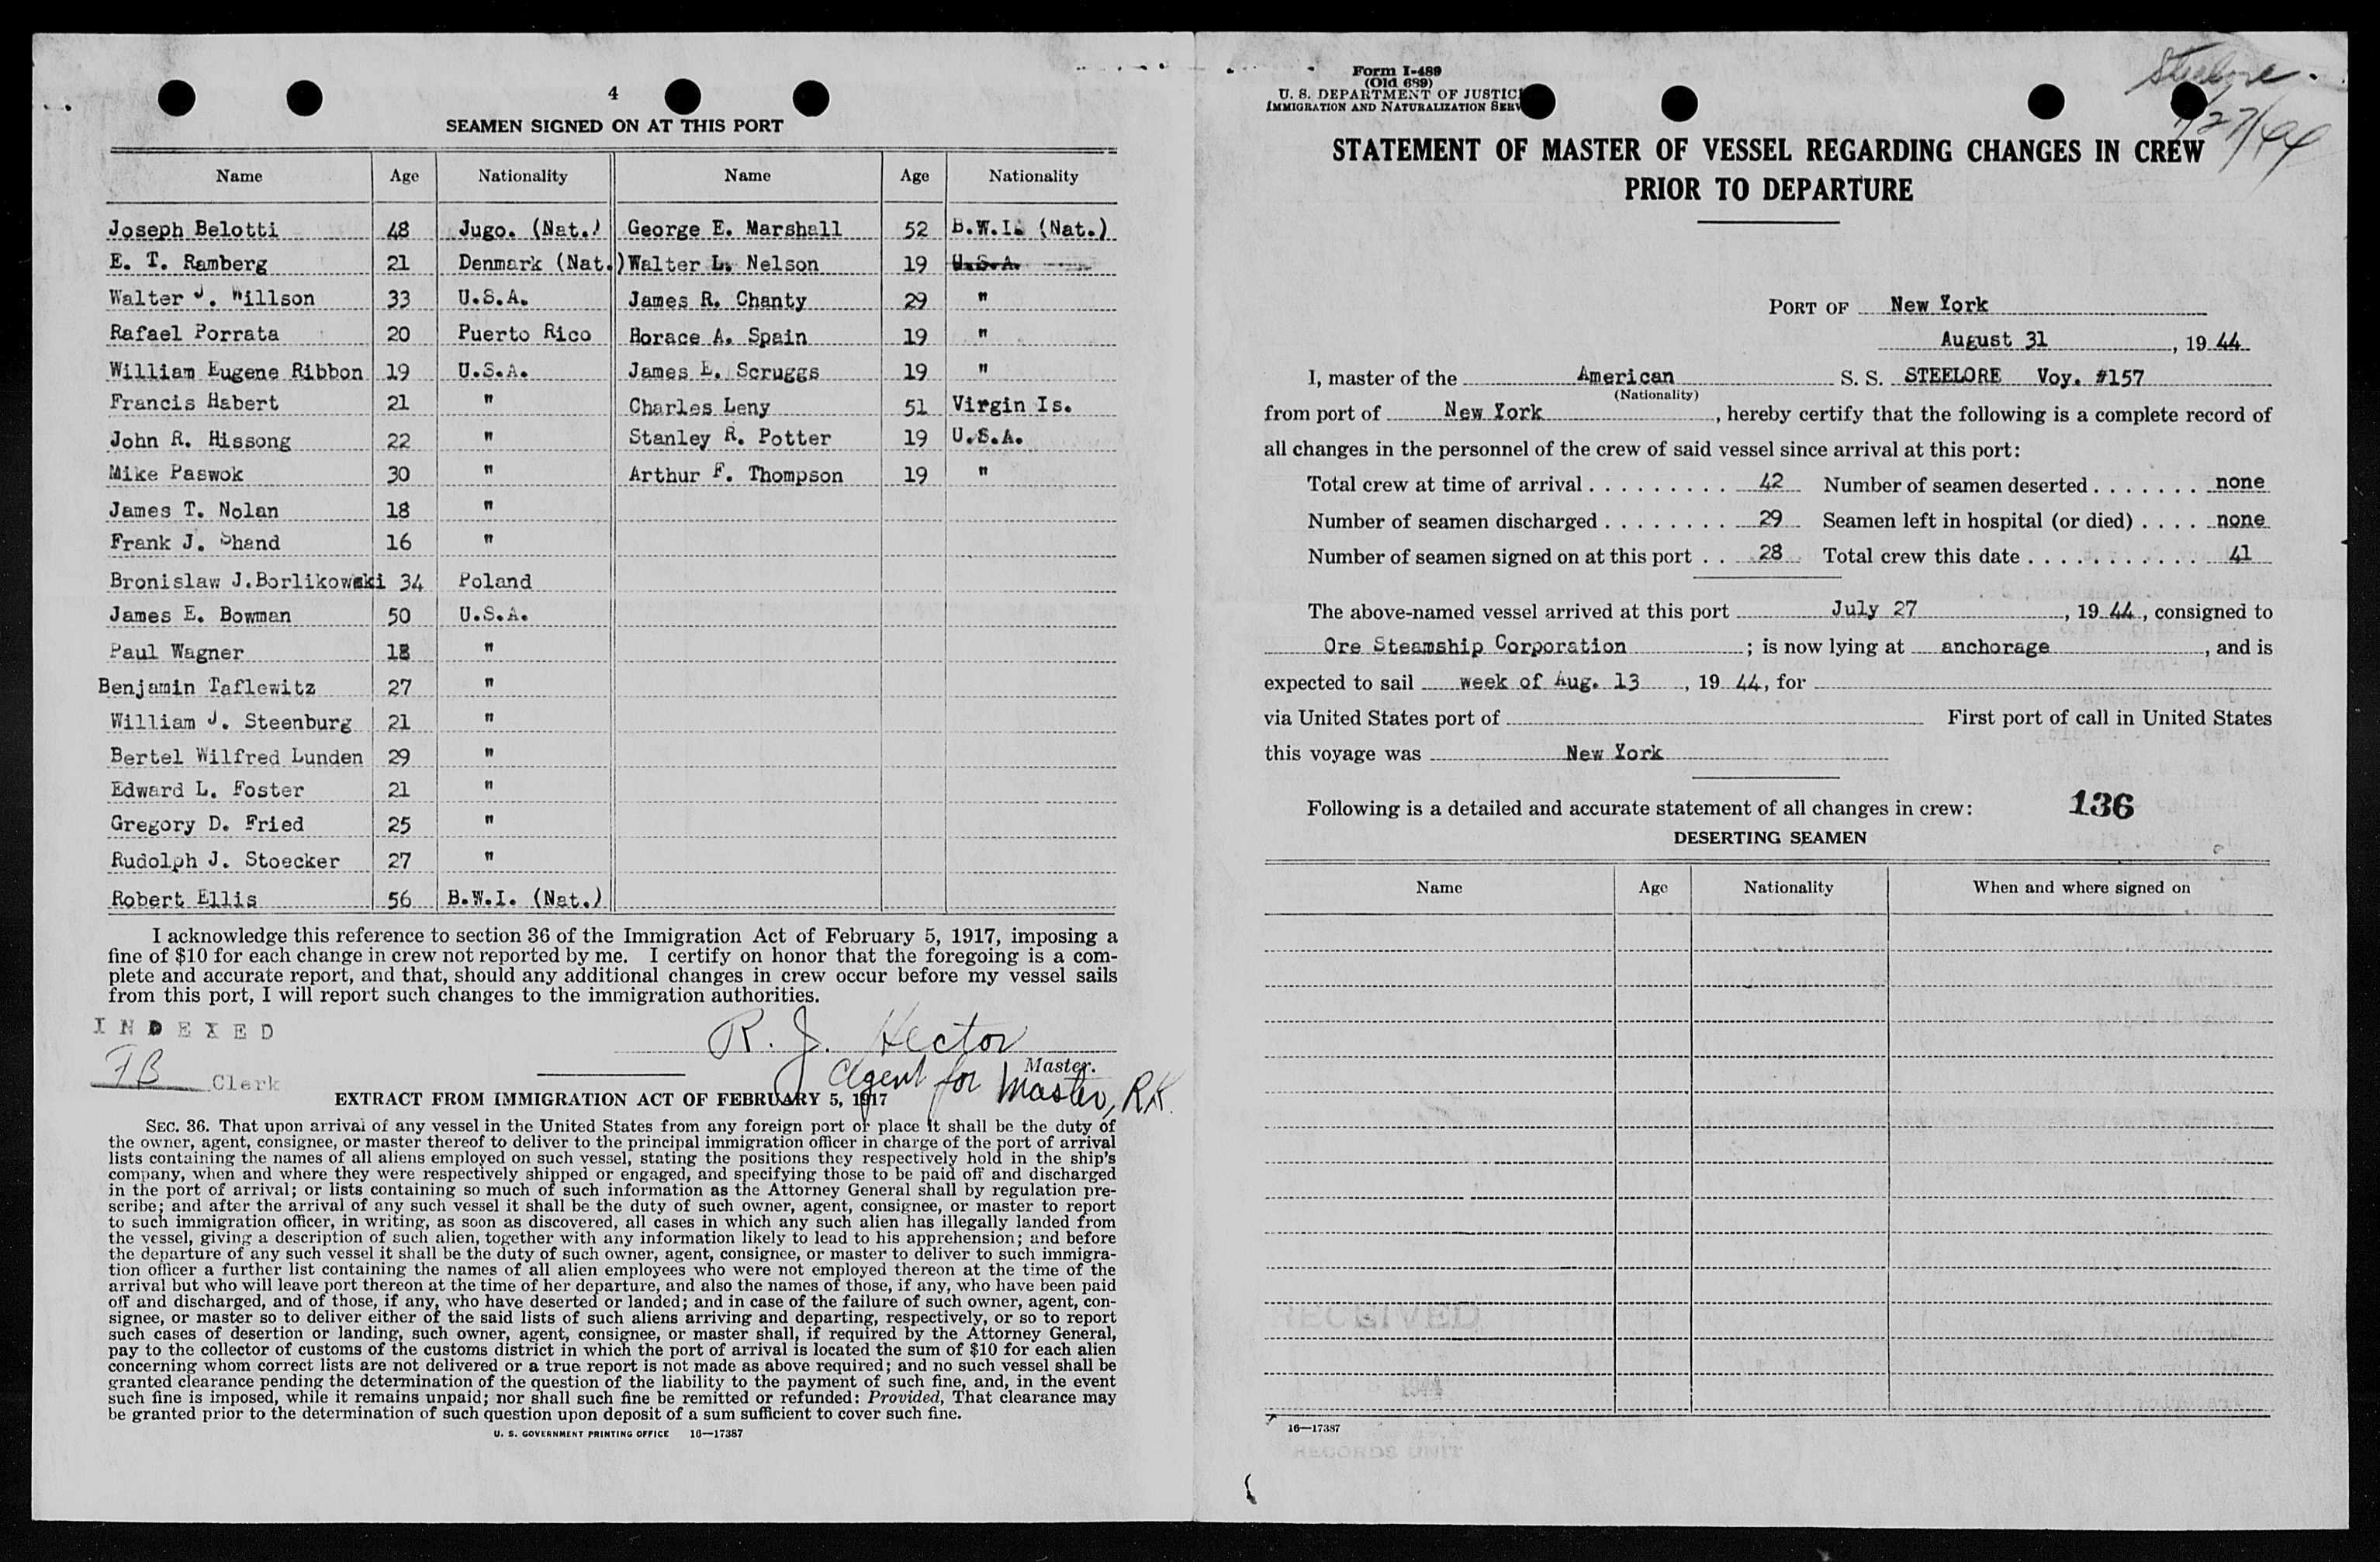 4
SEAMEN SIGNED ON AT THIS PORT
Name Age Nationality Name Age Nationality
Joseph Belotti 48 Jugo. (Nat.) George E. Marshall 52 B.W.I. (Nat.)
E. T. Ramberg 21 Denmark (Nat.) Walter L. Nelson 19 U.S.A.
Walter J. Willson 33 U.S.A. James R. Chanty 29 "
Rafael Porrata 20 Puerto Rico Horace A. Spain 19 "
William Eugene Ribbon 19 U.S.A. James E. Scruggs 19 "
Francis Habert 21 " Charles Leny 51 Virgin Is.
John R. Hissong 22 " Stanley R. Potter 19 U.S.A.
Mike Paswok 30 " Arthur F. Thompson 19 "
James T. Nolan 18 "
Frank J. Shand 16 "
Bronislaw J.Borlikowski 34 Poland
James E. Bowman 50 U.S.A.
Paul Wagner 18 "
Benjamin Taflewitz 27 "
William J. Steenburg 21 "
Bertel Wilfred Lunden 29 "
Edward L. Foster 21 "
Gregory D. Fried 25 "
Rudolph J. Stoecker 27 "
Robert Ellis 56 B.W.I. (Nat.)
I acknowledge this reference to section 36 of the Immigration Act of February 5, 1917, imposing a
fine of $10 for each change in crew not reported by me. I certify on honor that the foregoing is a com-
plete and accurate report, and that, should any additional changes in crew occur before my vessel sails
from this port, I will report such changes to the immigration authorities.
INDEXED
R. J. Hector
Master.
FB Clerk
Agent for Master, RH.
EXTRACT FROM IMMIGRATION ACT OF FEBRUARY 5, 1917
SEC. 36. That upon arrival of any vessel in the United States from any foreign port or place it shall be the duty of
the owner, agent, consignee, or master thereof to deliver to the principal immigration officer in charge of the port of arrival
lists containing the names of all aliens employed on such vessel, stating the positions they respectively hold in the ship's
company, when and where they were respectively shipped or engaged, and specifying those to be paid off and discharged
in the port of arrival; or lists containing so much of such information as the Attorney General shall by regulation pre-
scribe; and after the arrival of any such vessel it shall be the duty of such owner, agent, consignee, or master to report
to such immigration officer, in writing, as soon as discovered, all cases in which any such alien has illegally landed from
the vessel, giving a description of such alien, together with any information likely to lead to his apprehension; and before
the departure of any such vessel it shall be the duty of such owner, agent, consignee, or master to deliver to such immigra-
tion officer a further list containing the names of all alien employees who were not employed thereon at the time of the
arrival but who will leave port thereon at the time of her departure, and also the names of those, if any, who have been paid
off and discharged, and of those, if any, who have deserted or landed; and in case of the failure of such owner, agent, con-
signee, or master so to deliver either of the said lists of such aliens arriving and departing, respectively, or so to report
such cases of desertion or landing, such owner, agent, consignee, or master shall, if required by the Attorney General,
pay to the collector of customs of the customs district in which the port of arrival is located the sum of $10 for each alien
concerning whom correct lists are not delivered or a true report is not made as above required; and no such vessel shall be
granted clearance pending the determination of the question of the liability to the payment of such fine, and, in the event
such fine is imposed, while it remains unpaid; nor shall such fine be remitted or refunded: Provided, That clearance may
be granted prior to the determination of such question upon deposit of a sum sufficient to cover such fine.
U. S. GOVERNMENT PRINTING OFFICE 16—17387
Form I-489
(Old 689)
U. S. DEPARTMENT OF JUSTICE
IMMIGRATION AND NATURALIZATION SERV
Steelore.
7/27/44
STATEMENT OF MASTER OF VESSEL REGARDING CHANGES IN CREW
PRIOR TO DEPARTURE
PORT OF New York
August 31, 1944
I, master of the American S. S. STEELORE Voy. #157
(Nationality)
from port of New York, hereby certify that the following is a complete record of
all changes in the personnel of the crew of said vessel since arrival at this port:
Total crew at time of arrival . . . . . . . . . . 42 Number of seamen deserted . . . . . . . none
Number of seamen discharged . . . . . . . . 29 Seamen left in hospital (or died) . . . . none
Number of seamen signed on at this port . . 28 Total crew this date . . . . . . . . . . . 41
The above-named vessel arrived at this port July 27, 1944, consigned to
Ore Steamship Corporation; is now lying at anchorage, and is
expected to sail week of Aug. 13, 1944, for
via United States port of First port of call in United States
this voyage was New York
Following is a detailed and accurate statement of all changes in crew: 136
DESERTING SEAMEN
Name Age Nationality When and where signed on
RECEIVED
1944
16—17387
RECORDS UNIT